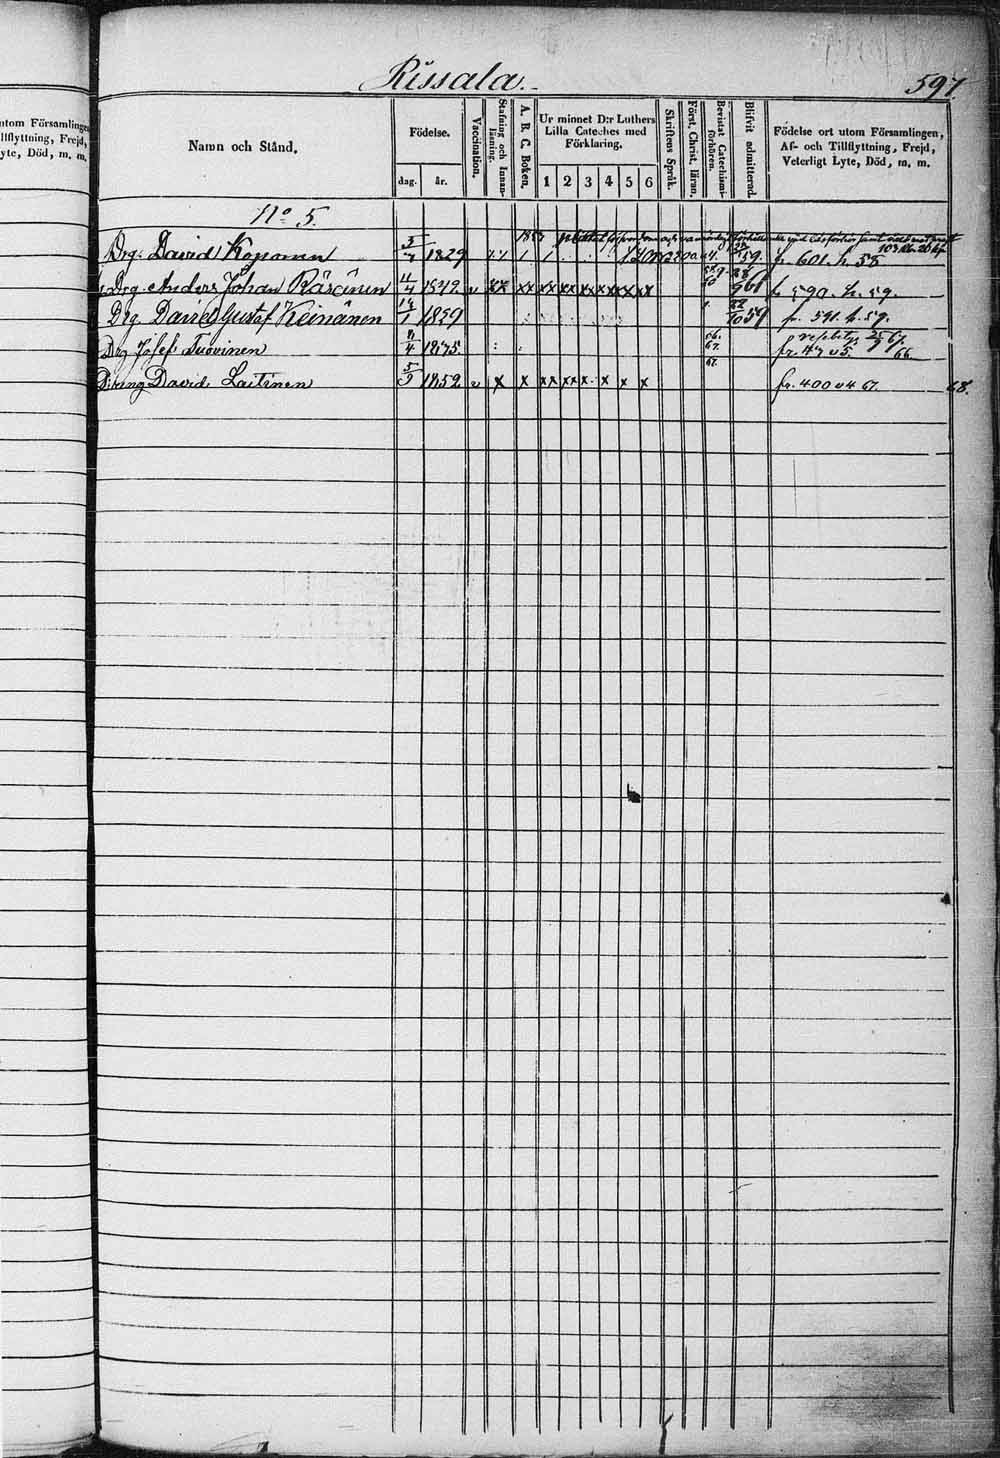 Rissala. 597
utom Församlingen
Tillflyttning, Frejd,
yte, Död, m. m.
Namn och Stånd.
Födelse.
dag. år.
Vaccination.
Stafning och Innan-
läsning.
A. B. C. Boken.
Ur minnet D:r Luthers
Lilla Cateches med
Förklaring.
1 2 3 4 5 6
Skriftens Språk.
Först. Christ. läran.
Bevistat Catechismi-
förhören.
Blifvit admitterad.
Födelse ort utom Församlingen,
Af- och Tillflyttning, Frejd,
Veterligt Lyte, Död, m. m.
No 5.
Drg. David Koponen 1829 59. fr. 601. h. 58
Drg. Anders Johan Räsänen 11/4 1842 v xx xx xx xx xx xx xx xx fr 590. h. 59.
Drg. Daniel Gustaf Keinänen 1839 22/10 59 fr. 591. h. 59.
66.
67.
Drg Josef Tuovinen 1835 fr. 47 v 5. 66.
67.
Dräng David Laitinen 5/2 1852 v x x xx xx x x x x fr. 400 v 4 67. 68.